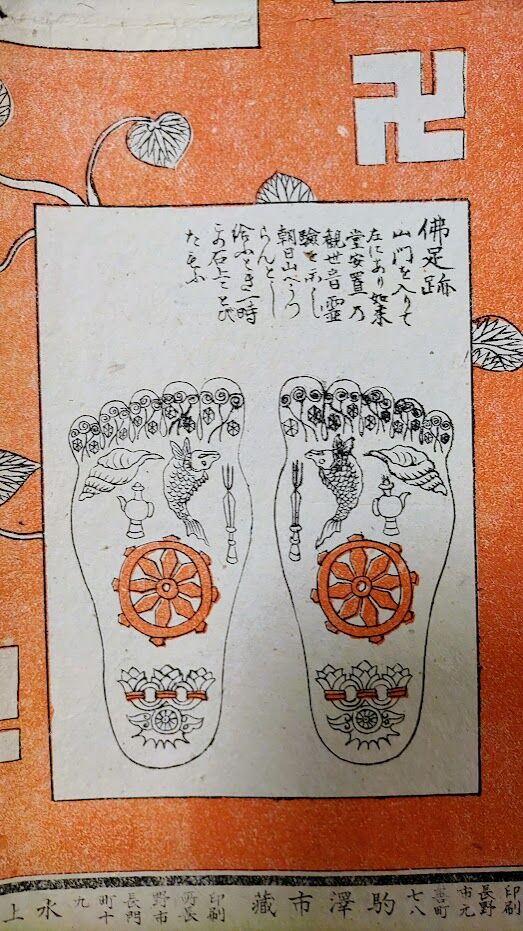 佛足跡
山門を入りて
左にあり如来
堂安置乃
観世音霊
験を示し
朝日山へうつ
らんとし
給ふとき一時
この石上にとび
たまふ
印刷
長野
市元
善町
七八
駒澤市藏
印刷
所長
野市
長門
町十
九
水上